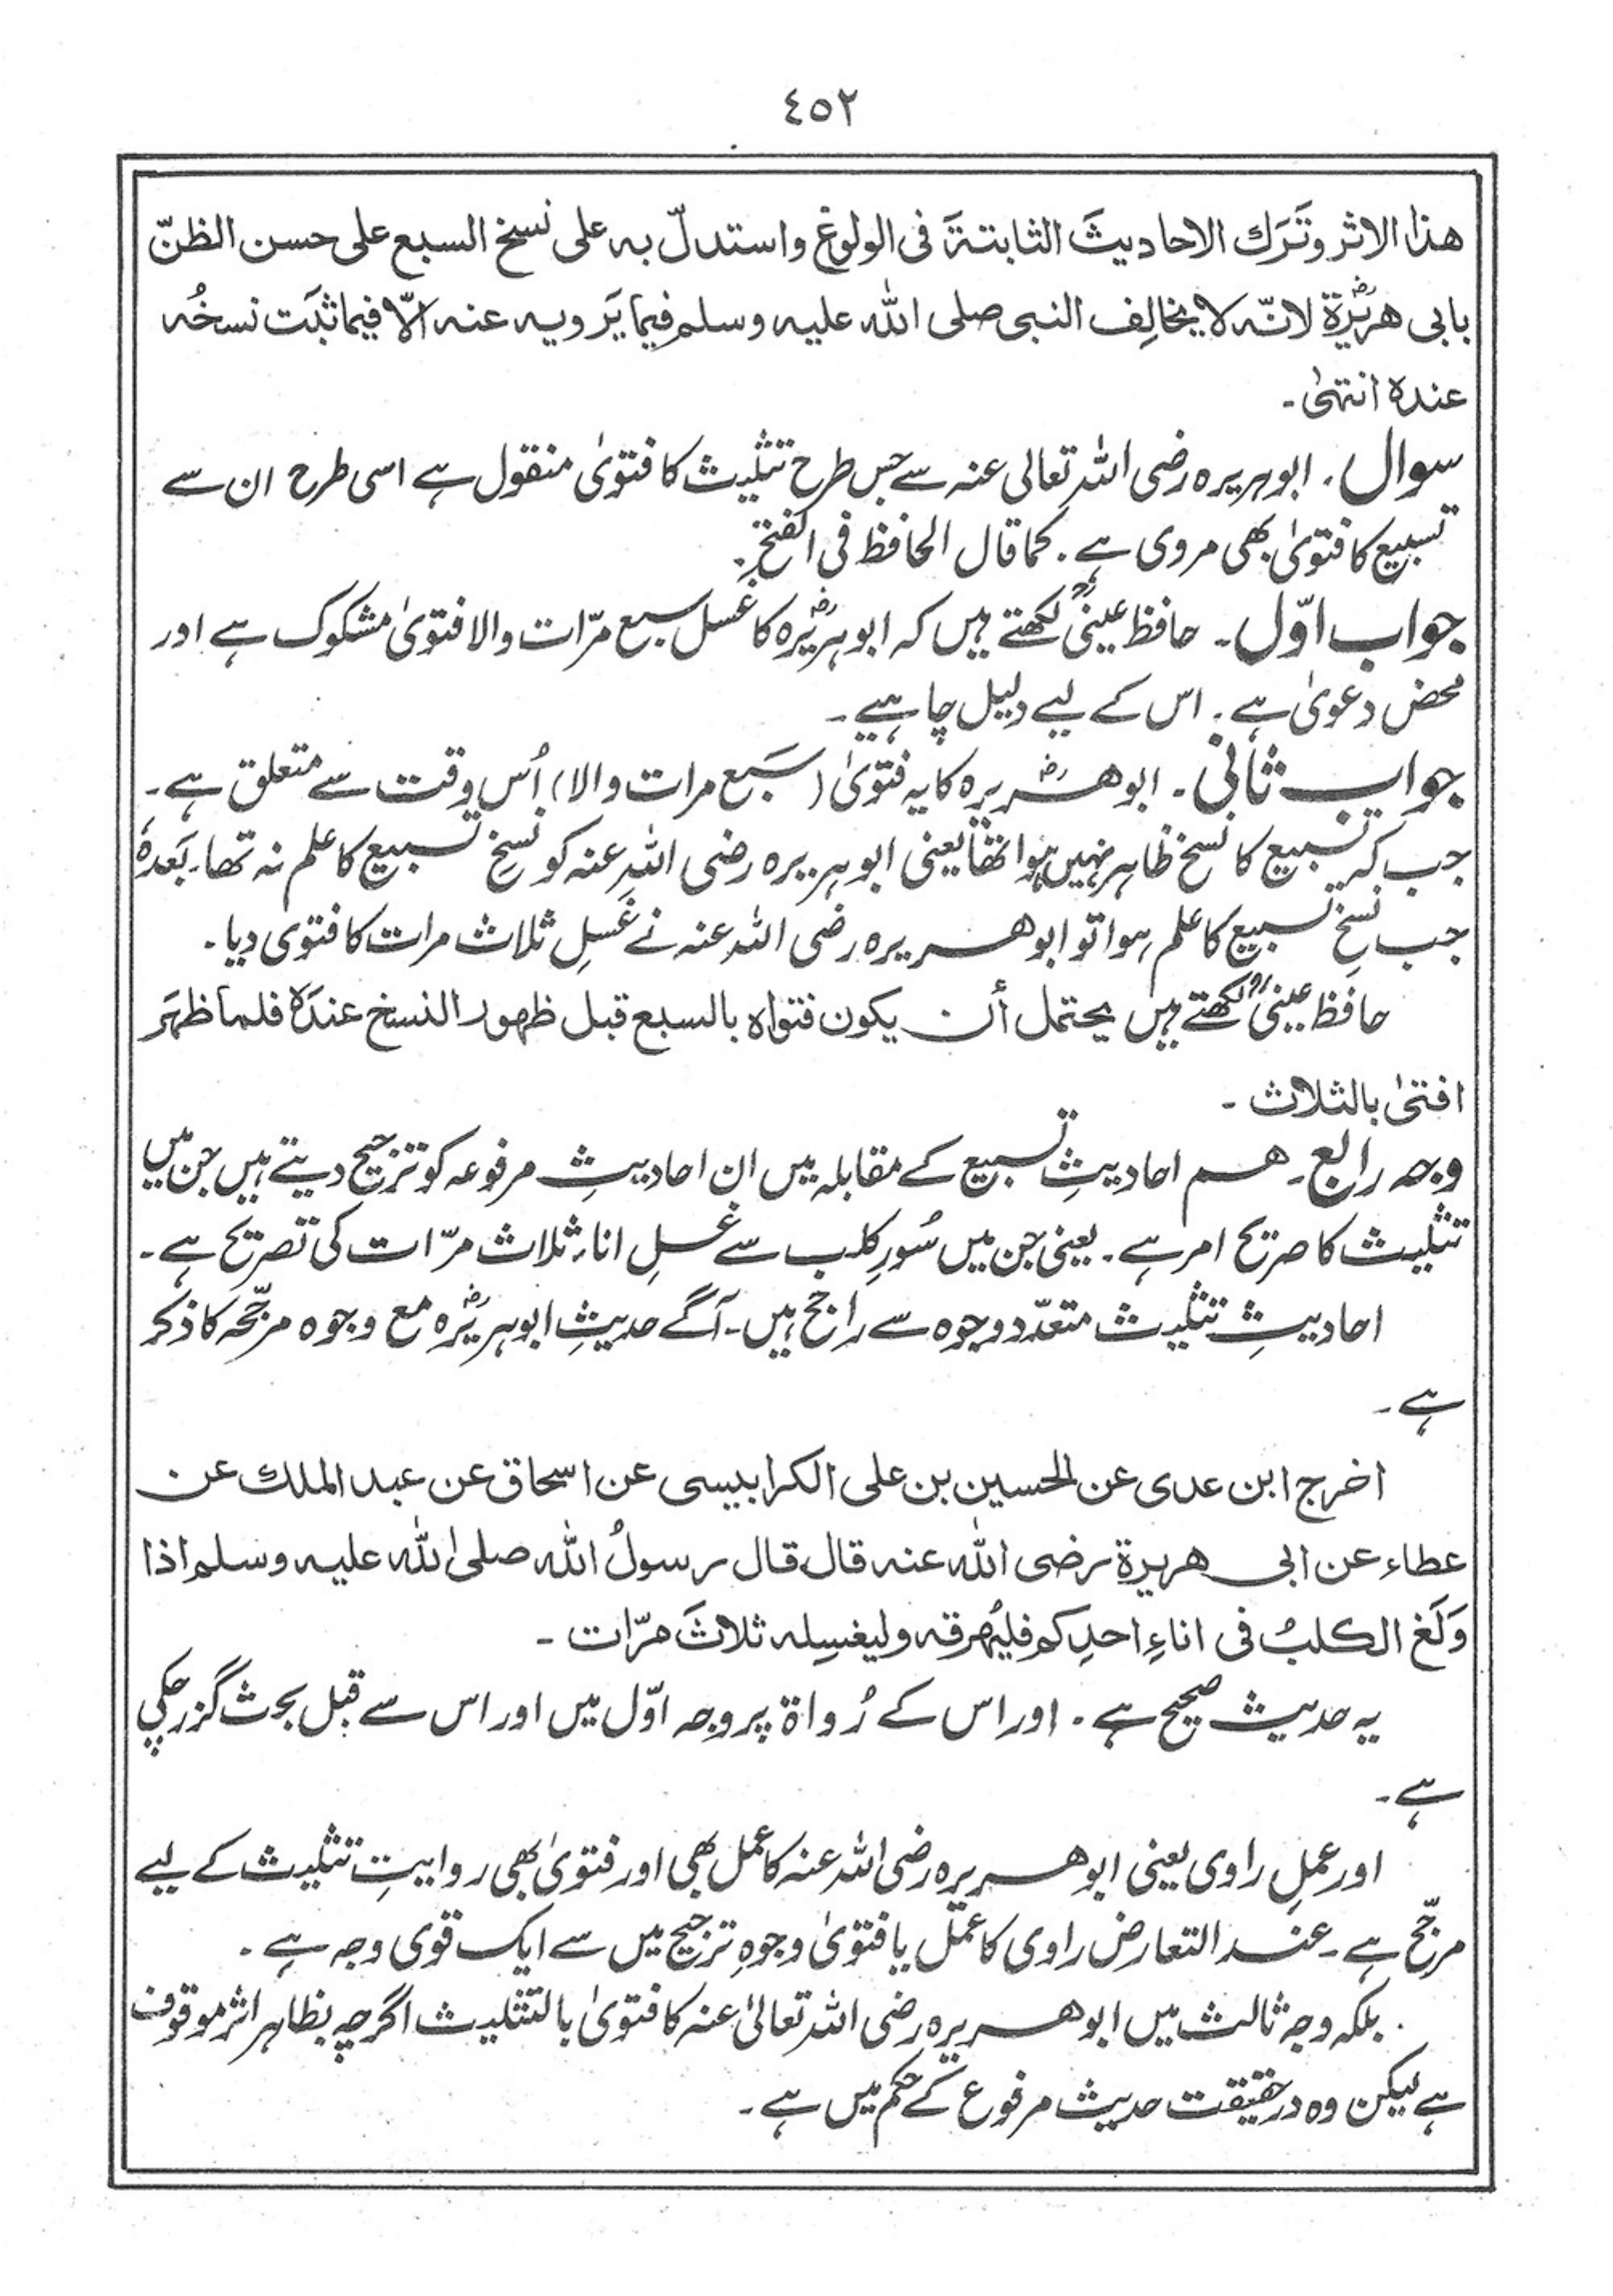 ٤٥٢
هذا الاثر وتَرَك الاحاديثَ الثابتةَ فى الولوغ واستدلّ به على نسخ السبع على حسن الظنّ
بابى هريرةؓ لانّه لا يخالِف النبى صلى الله عليه وسلم فيما يَرويه عنه الّا فيما ثبَت نسخُه
عنده انتهىٰ۔
سوال۔ ابوہریرہ رضی اللہ تعالی عنہ سے جس طرح تثلیث کا فتویٰ منقول ہے اسی طرح ان سے
تسبیع کا فتویٰ بھی مروی ہے۔ کما قال الحافظ فی الفتح۔
جواب اوّل۔ حافظ عینیؒ لکھتے ہیں کہ ابوہریرہؓ کا غسل سبع مرّات والا فتویٰ مشکوک ہے اور
محض دعویٰ ہے۔ اس کے لیے دلیل چاہیے۔
جواب ثانی۔ ابوھریرہؓ کا یہ فتویٰ (سَبع مرات والا) اُس وقت سے متعلق ہے۔
جب کہ تسبیع کا نسخ ظاہر نہیں ہوا تھا یعنی ابوہریرہ رضی اللہ عنہ کو نسخِ تسبیع کا علم نہ تھا۔ بَعدہٗ
جب نسخِ تسبیع کا علم ہوا تو ابوھریرہ رضی اللہ عنہ نے غَسلِ ثلاث مرات کا فتوی دیا۔
حافظ عینیؒ لکھتے ہیں یحتمل أن یکون فتواہ بالسبع قبل ظهور النسخ عندَہ فلما ظهَر
افتیٰ بالثلاث۔
وجہ رابع۔ ھم احادیثِ تسبیع کے مقابلہ میں ان احادیثِ مرفوعہ کو ترجیح دیتے ہیں جن میں
تثلیث کا صریح امر ہے۔ یعنی جن میں سُورِ کلب سے غسلِ اناء ثلاث مرّات کی تصریح ہے۔
احادیثِ تثلیث متعدّد وجوہ سے راجح ہیں۔ آگے حدیثِ ابوہریرہؓ مع وجوہ مرجّحہ کا ذکر
ہے۔
اخرج ابن عدى عن الحسين بن على الكرابيسى عن اسحاق عن عبد الملك عن
عطاء عن ابى هريرة رضى الله عنه قال قال رسولُ الله صلى الله عليه وسلم اذا
وَلَغ الكلبُ فى اناءِ احدِكم فليُهرقه وليغسِله ثلاثَ مرّات۔
یہ حدیث صحیح ہے۔ اور اس کے رُواۃ پر وجہ اوّل میں اور اس سے قبل بحث گزر چکی
ہے۔
اور عملِ راوی یعنی ابوھریرہ رضی اللہ عنہ کا عمل بھی اور فتویٰ بھی روایتِ تثلیث کے لیے
مرجّح ہے۔ عند التعارض راوی کا عمل یا فتویٰ وجوہِ ترجیح میں سے ایک قوی وجہ ہے۔
بلکہ وجہ ثالث میں ابوھریرہ رضی اللہ تعالیٰ عنہ کا فتویٰ بالتثلیث اگرچہ بظاہر اثر موقوف
ہے لیکن وہ درحقیقت حدیث مرفوع کے حکم میں ہے۔